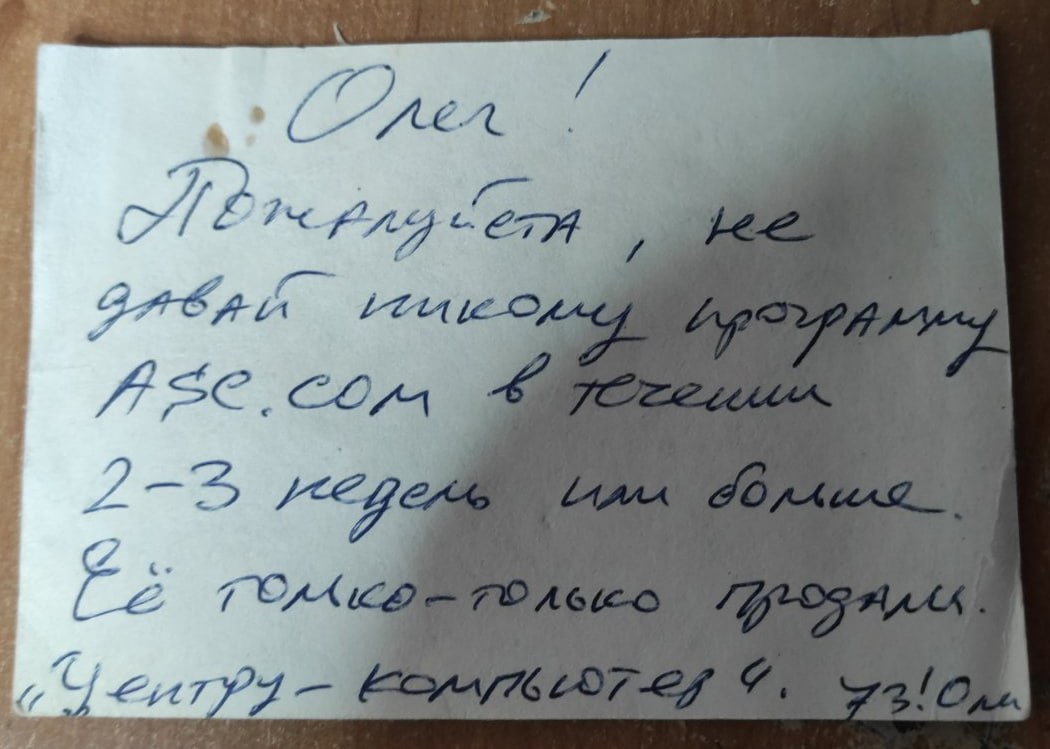 Олег!
Пожалуйста, не
давай никому программу
ASC.com в течении
2-3 недель или больше.
Её только-только продали.
"Центру-компьютер". 73!